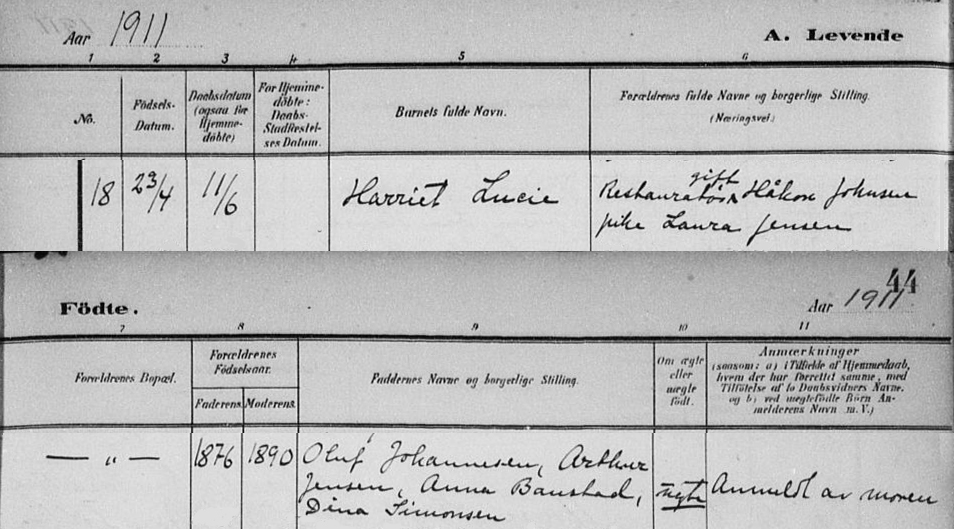 Aar 1911 A. Levende
1 2 3 4 5 6
No.
Födsels-
Datum.
Daabsdatum
(ogsaa for
Hjemme-
döbte)
For Hjemme-
döbte:
Daabs-
Stadfæstel-
ses Datum.
Barnets fulde Navn.
Forældrenes fulde Navne og borgerlige Stilling.
(Næringsvei.)
18 23/4 11/6 Harriet Lucie
gift
Restauratör Håkon Johnsen
pike Laura Jensen
44
Födte. Aar 1911
7 8 9 10 11
Forældrenes Bopæl.
Forældrenes
Födselsaar.
Faderens. Moderens.
Faddernes Navne og borgerlige Stilling.
Om ægte
eller
uægte
födt.
Anmærkninger
(saasom: a) i Tilfælde af Hjemmedaab,
hvem der har forrettet samme, med
Tilföielse af to Daabsvidners Navne.
og b) ved uægtefödte Börn An-
melderens Navn m. V.)
— „ — 1876 1890 Oluf Johannesen, Arthur
Jensen, Anna Baustad,
Dina Simonsen
uegte
Anmeldt av moren